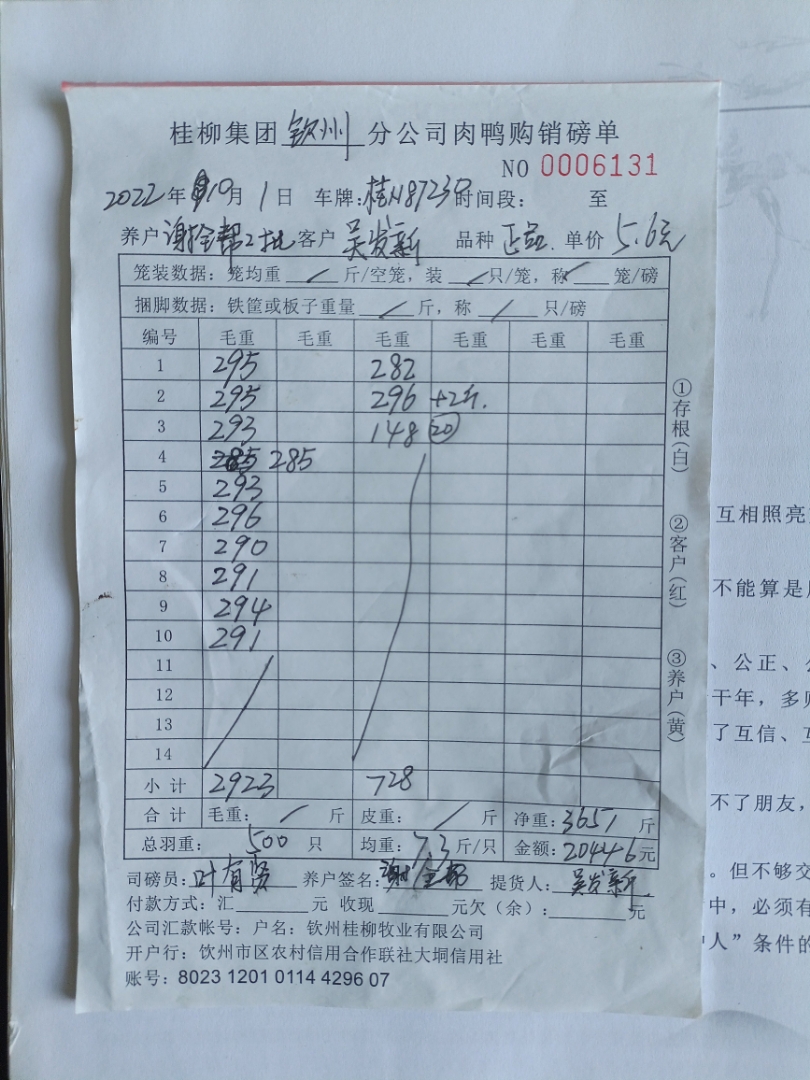 桂柳集团 钦州 分公司肉鸭购销磅单
NO 0006131
2022年10月1日 车牌:桂N87230 时间段: 至
养户 谢全帮2批 客户 吴发新 品种 正品. 单价 5.6元
笼装数据: 笼均重 / 斤/空笼, 装 / 只/笼, 称 / 笼/磅
捆脚数据: 铁筐或板子重量 / 斤, 称 / 只/磅
编号 毛重 毛重 毛重 毛重 毛重 毛重
1 295 282
2 295 296 +2斤.
3 293 148 20
4 285 285
5 293
6 296
7 290
8 291
9 294
10 291
11
12
13
14
小计 2923 728
合计 毛重: / 斤 皮重: / 斤 净重: 3651 斤
总羽重: 500 只 均重: 7.3 斤/只 金额: 20446 元
司磅员: 叶有贤 养户签名: 谢全帮 提货人: 吴发新
付款方式: 汇 元 收现 元欠(余): 元
公司汇款帐号: 户名: 钦州桂柳牧业有限公司
开户行: 饮州市区农村信用合作联社大垌信用社
账号: 8023 1201 0114 4296 07
①存根(白)
②客户(红)
③养户(黄)
互相照亮
不能算是
、公正、
干年,多
了互信、
不了朋友,
。但不够交
中,必须有
人”条件的